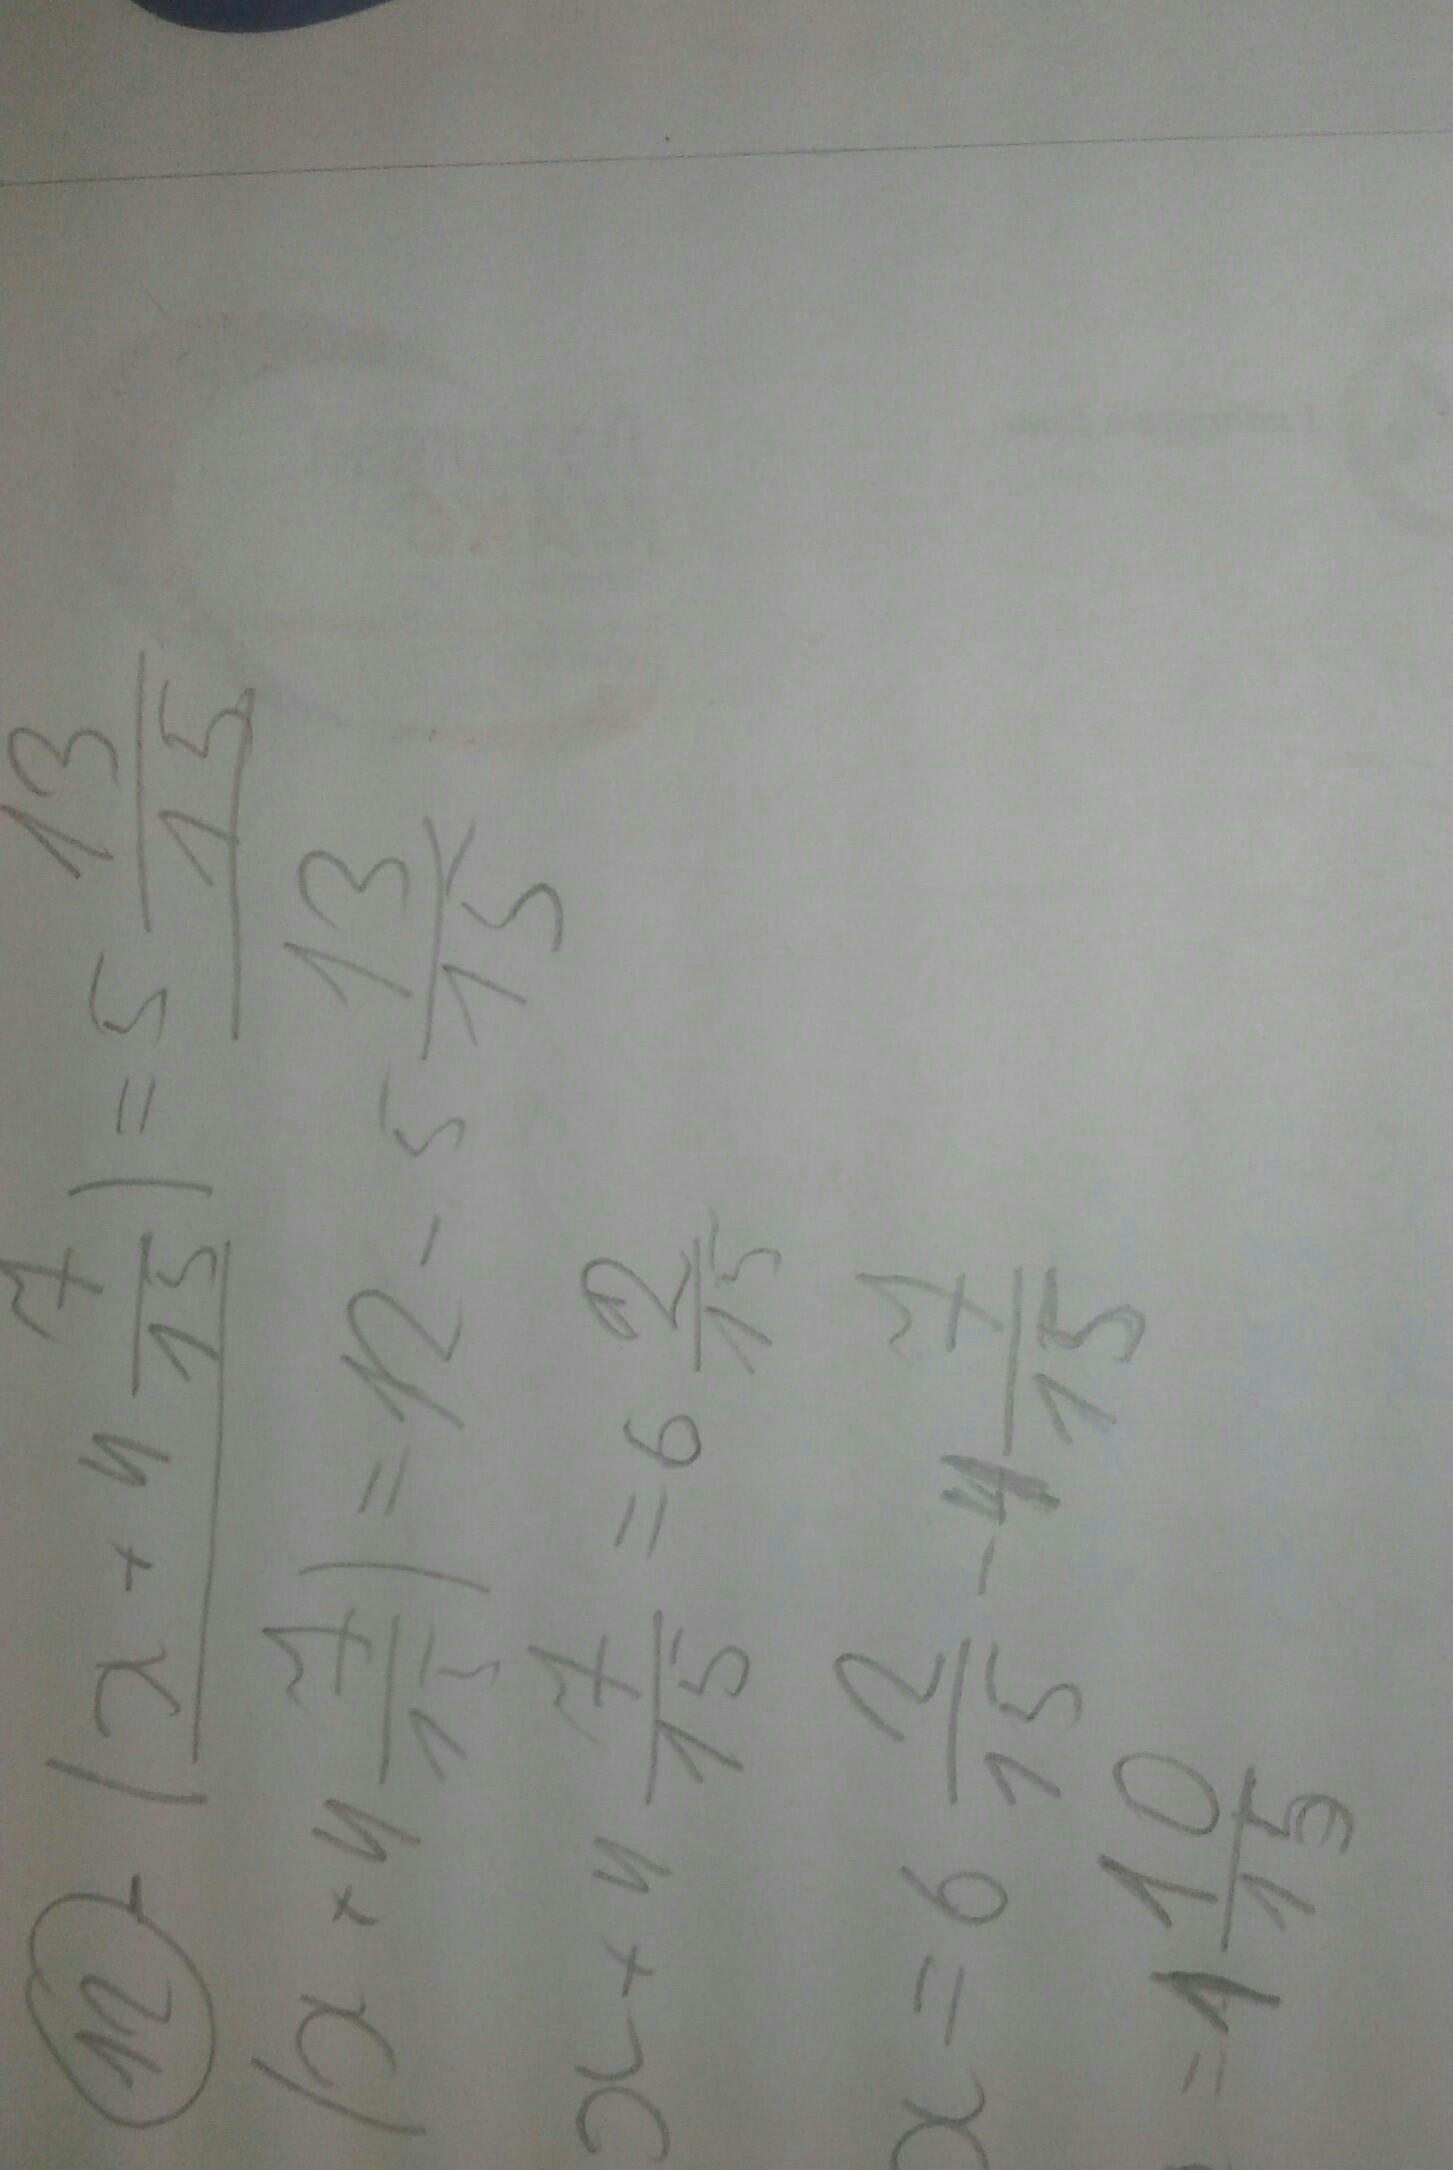 12 - (x + 4 7/15) = 5 13/15
(x + 4 7/15) = 12 - 5 13/15
x + 4 7/15 = 6 2/15
x = 6 2/15 - 4 7/15
= 1 10/15